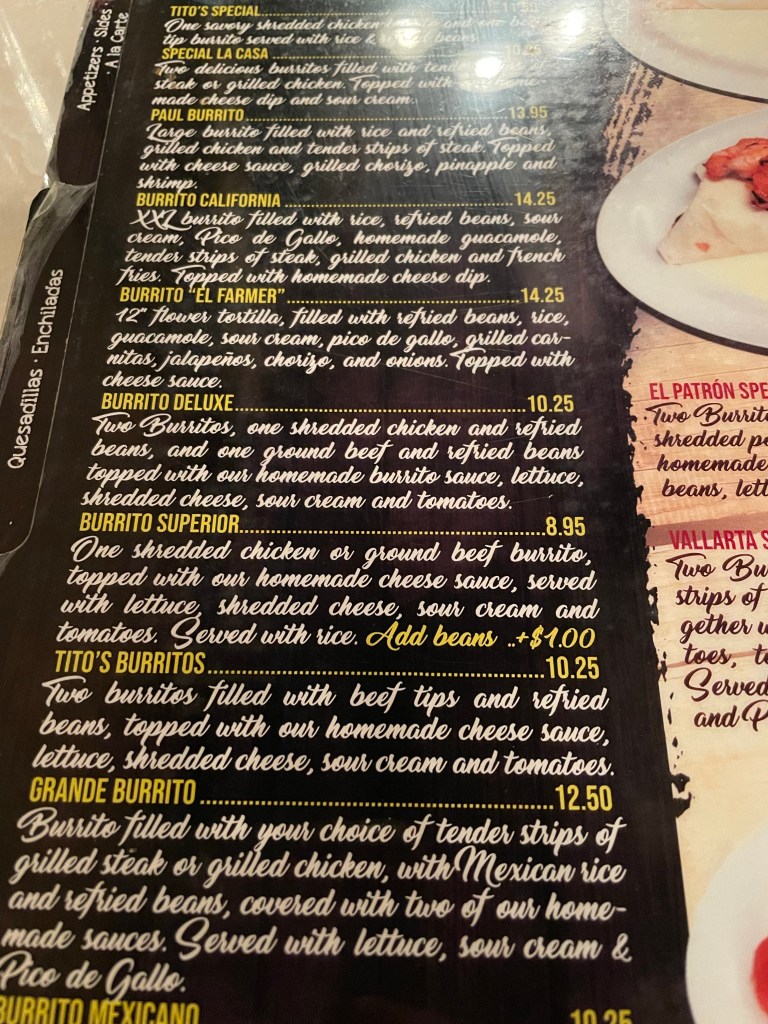 Appetizers · Sides ·
A la Carte
Quesadillas · Enchiladas
TITO'S SPECIAL
One savory shredded chicken burrito and one beef
tip burrito served with rice & beans.
SPECIAL LA CASA
Two delicious burritos filled with tender
steak or grilled chicken. Topped with
made cheese dip and sour cream.
PAUL BURRITO 13.95
Large burrito filled with rice and refried beans,
grilled chicken and tender strips of steak. Topped
with cheese sauce, grilled chorizo, pinapple and
shrimp.
BURRITO CALIFORNIA 14.25
XXL burrito filled with rice, refried beans, sour
cream, Pico de Gallo, homemade guacamole,
tender strips of steak, grilled chicken and french
fries. Topped with homemade cheese dip.
BURRITO "EL FARMER" 14.25
12" flower tortilla, filled with refried beans, rice,
guacamole, sour cream, pico de gallo, grilled car-
nitas, jalapeños, chorizo, and onions. Topped with
cheese sauce.
BURRITO DELUXE 10.25
Two Burritos, one shredded chicken and refried
beans, and one ground beef and refried beans
topped with our homemade burrito sauce, lettuce,
shredded cheese, sour cream and tomatoes.
BURRITO SUPERIOR 8.95
One shredded chicken or ground beef burrito,
topped with our homemade cheese sauce, served
with lettuce, shredded cheese, sour cream and
tomatoes. Served with rice. Add beans ..+$1.00
TITO'S BURRITOS 10.25
Two burritos filled with beef tips and refried
beans, topped with our homemade cheese sauce,
lettuce, shredded cheese, sour cream and tomatoes.
GRANDE BURRITO 12.50
Burrito filled with your choice of tender strips of
grilled steak or grilled chicken, with Mexican rice
and refried beans, covered with two of our home-
made sauces. Served with lettuce, sour cream &
Pico de Gallo.
BURRITO MEXICANO 10.25
EL PATRÓN SPE
Two Burrito
shredded po
homemade
beans, lett
VALLARTA S
Two Bu
strips of
gether w
toes, to
Served
and P